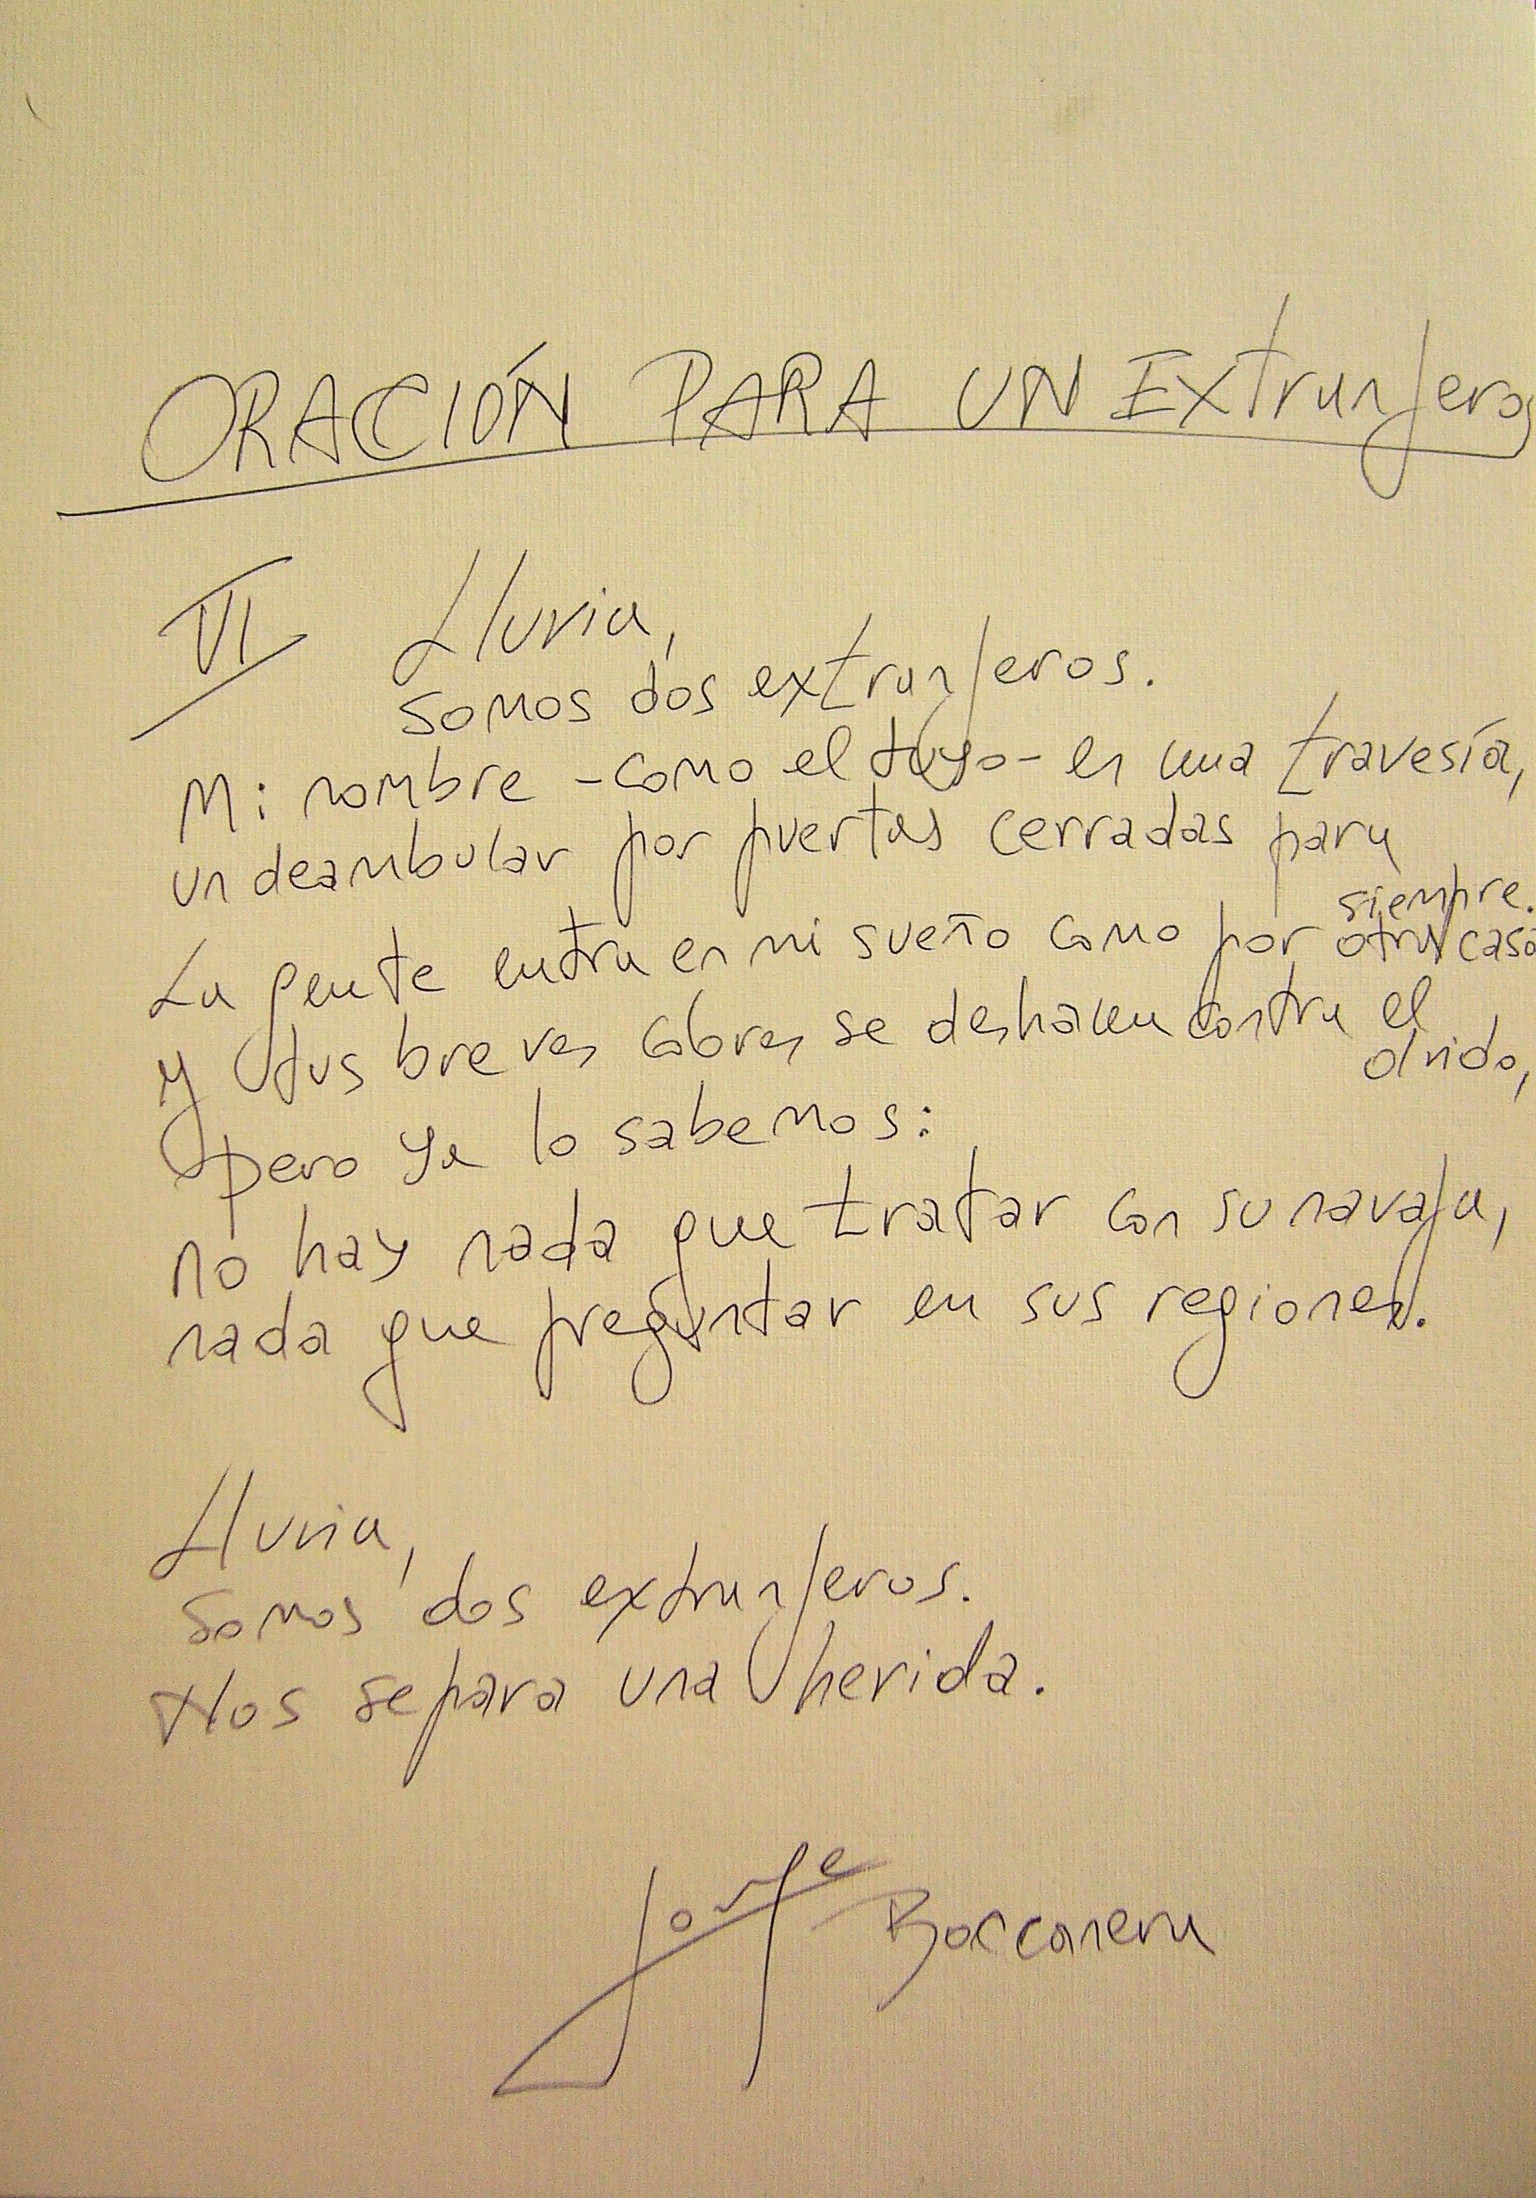 ORACIÓN PARA UN Extranjero
VI Lluvia,
somos dos extranjeros.
Mi nombre -como el tuyo- es una travesía,
un deambular por puertas cerradas para
siempre.
La gente entra en mi sueño como por otra casa
y tus breves colores se deshacen contra el
olvido,
pero ya lo sabemos:
no hay nada que tratar con su navaja,
nada que preguntar en sus regiones.
Lluvia,
somos dos extranjeros.
Nos separa una herida.
Jorge Boccanera